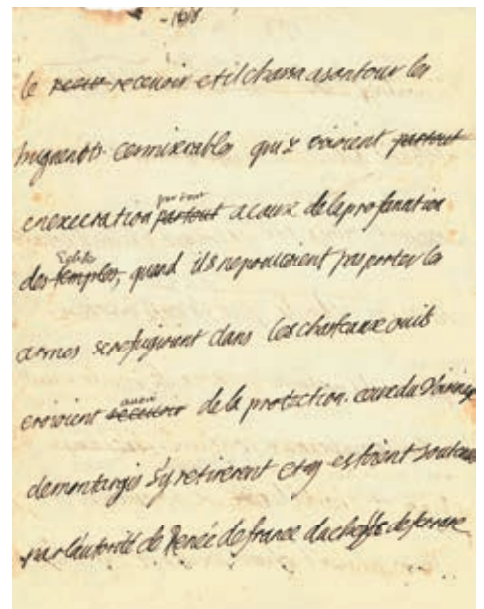 le recevoir et il chassa a son tour les
hugnenots ces miserables qui estoient partout
partout
en execration partout a cause de la profanation
Eglises
des temples, quand ils ne pouvoient pas porter les
armes se refugioient dans les chasteaux ou ils
avoir
croioient recevoir de la protection. ceux du Voisinage
de montargis s'y retirerent et y estoient soutenus
par l'autorité de Renée de france duchesse de ferrare